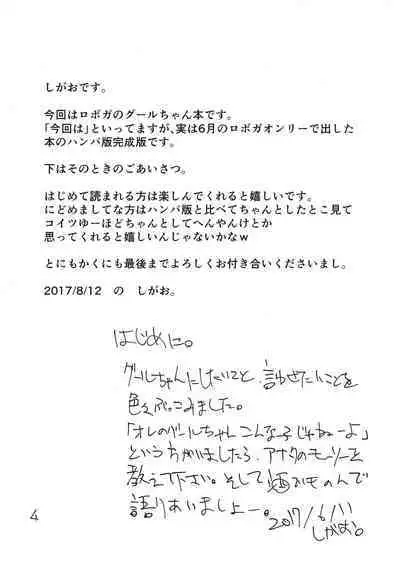 しがおです。
今回はロボガのグールちゃん本です。
「今回は」といってますが、実は6月のロボガオンリーで出した
本のハンパ版完成版です。
下はそのときのごあいさつ。
はじめて読まれる方は楽しんでくれると嬉しいです。
にどめましてな方はハンパ版と比べてちゃんとしたとこ見て
コイツゆーほどちゃんとしてへんやんけとか
思ってくれると嬉しいんじゃないかなw
とにもかくにも最後までよろしくお付き合いくださいまし。
2017/8/12 の しがお。
はじめに。
グールちゃんにしたいこと、言わせたいことを
色々ぶっこみました。
「オレのグールちゃんこんな子じゃねーよ」
という方がいましたら、アナタのモーソーを
教えて下さい。そして酒でものんで
語りあいましょー。2017/6/11
しがお。
4